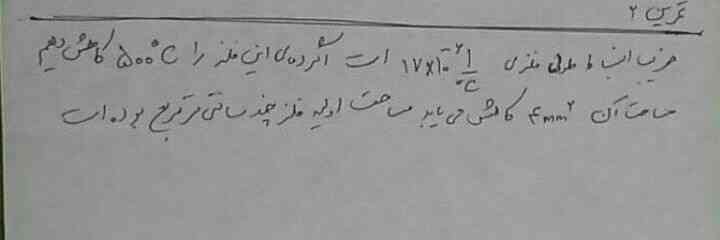 تمرین ۲
ضریب انبساط طولی فلزی ۱۷×۱۰⁻⁶ 1/°C است اگر دمای این فلز را ۵۰۰°C کاهش دهیم
مساحت آن ۴mm² کاهش می یابد مساحت اولیه فلز چند سانتی متر مربع بوده است